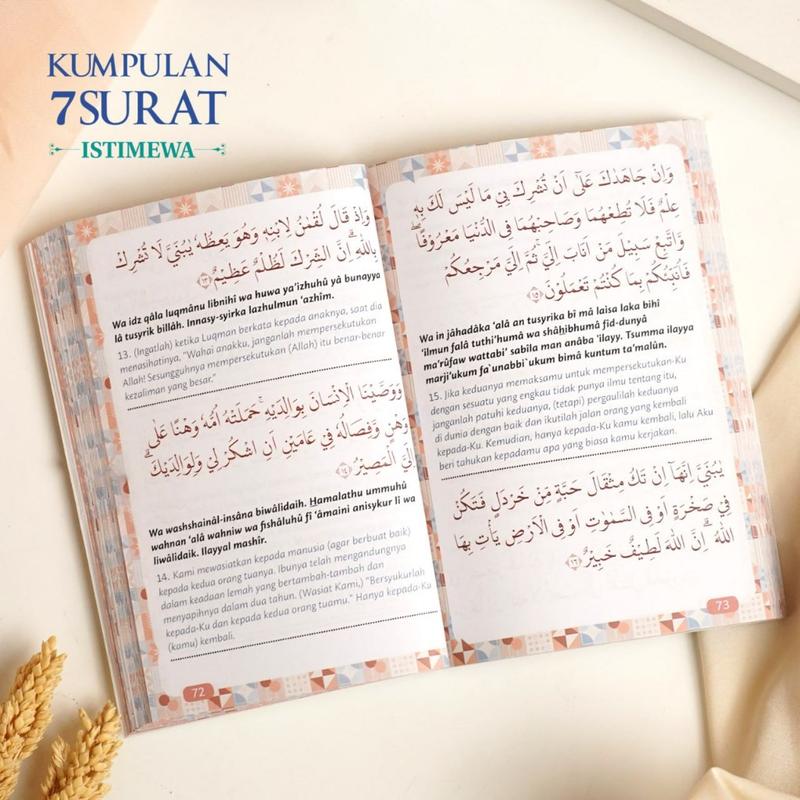 KUMPULAN
7SURAT
ISTIMEWA
وَاِذْ قَالَ لُقْمٰنُ لِابْنِهٖ وَهُوَ يَعِظُهٗ يٰبُنَيَّ لَا تُشْرِكْ
بِاللّٰهِ ۗاِنَّ الشِّرْكَ لَظُلْمٌ عَظِيْمٌ ١٣
Wa idz qâla luqmânu libnihî wa huwa ya'izhuhû yâ bunayya
lâ tusyrik billâh. Innasy-syirka lazhulmun 'azhîm.
13. (Ingatlah) ketika Luqman berkata kepada anaknya, saat dia
menasihatinya, "Wahai anakku, janganlah mempersekutukan
Allah! Sesungguhnya mempersekutukan (Allah) itu benar-benar
kezaliman yang besar."
وَوَصَّيْنَا الْاِنْسَانَ بِوَالِدَيْهِۚ حَمَلَتْهُ اُمُّهٗ وَهْنًا عَلٰى
وَهْنٍ وَّفِصَالُهٗ فِيْ عَامَيْنِ اَنِ اشْكُرْ لِيْ وَلِوَالِدَيْكَۗ
اِلَيَّ الْمَصِيْرُ ١٤
Wa washshainâl-insâna biwâlidaih. Hamalathu ummuhû
wahnan 'alâ wahniw wa fishâluhû fî 'âmaini anisykur lî wa
liwâlidaik. Ilayyal mashîr.
14. Kami mewasiatkan kepada manusia (agar berbuat baik)
kepada kedua orang tuanya. Ibunya telah mengandungnya
dalam keadaan lemah yang bertambah-tambah dan
menyapihnya dalam dua tahun. (Wasiat Kami,) "Bersyukurlah
kepada-Ku dan kepada kedua orang tuamu." Hanya kepada-Ku
(kamu) kembali.
72
وَاِنْ جَاهَدٰكَ عَلٰٓى اَنْ تُشْرِكَ بِيْ مَا لَيْسَ لَكَ بِهٖ
عِلْمٌ فَلَا تُطِعْهُمَا وَصَاحِبْهُمَا فِى الدُّنْيَا مَعْرُوْفًا ۖ
وَّاتَّبِعْ سَبِيْلَ مَنْ اَنَابَ اِلَيَّۚ ثُمَّ اِلَيَّ مَرْجِعُكُمْ
فَاُنَبِّئُكُمْ بِمَا كُنْتُمْ تَعْمَلُوْنَ ١٥
Wa in jâhadâka 'alâ an tusyrika bî mâ laisa laka bihî
'ilmun falâ tuthi'humâ wa shâhibhumâ fid-dunyâ
ma'rûfaw wattabi' sabila man anâba 'ilayy. Tsumma ilayya
marji'ukum fa`unabbi`ukum bimâ kuntum ta'malûn.
15. Jika keduanya memaksamu untuk mempersekutukan-Ku
dengan sesuatu yang engkau tidak punya ilmu tentang itu,
janganlah patuhi keduanya, (tetapi) pergaulilah keduanya
di dunia dengan baik dan ikutilah jalan orang yang kembali
kepada-Ku. Kemudian, hanya kepada-Ku kamu kembali, lalu Aku
beri tahukan kepadamu apa yang biasa kamu kerjakan.
يٰبُنَيَّ اِنَّهَآ اِنْ تَكُ مِثْقَالَ حَبَّةٍ مِّنْ خَرْدَلٍ فَتَكُنْ
فِيْ صَخْرَةٍ اَوْ فِى السَّمٰوٰتِ اَوْ فِى الْاَرْضِ يَأْتِ بِهَا
اللّٰهُ ۗاِنَّ اللّٰهَ لَطِيْفٌ خَبِيْرٌ ١٦
73